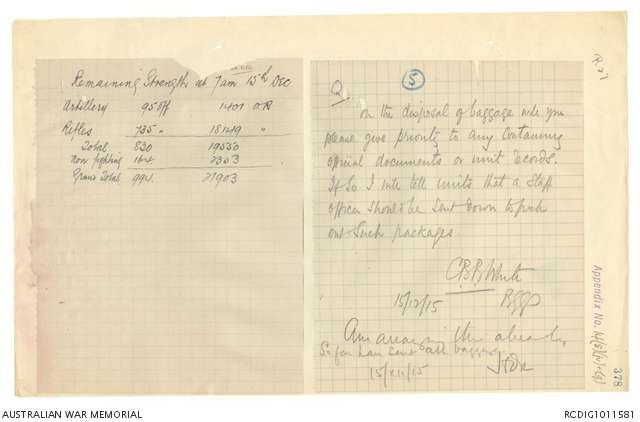 Remaining Strengths at 7am 15th Dec
Artillery 95 off 1401 O.R
Rifles 735 " 18149 "
Total 830 19550
Non fighting 164 2353
Grand Total 994 21903
5
Q.
On the disposal of baggage will you
please give priority to any containing
official documents or unit records.
If so I will tell units that a Staff
officer should be sent down to pick
out such packages
C.B.B. White
15/12/15 BGGS
Am arranging this already
So far have sent all baggage
15/XII/15
(R.27
Appendix No.
378
AUSTRALIAN WAR MEMORIAL
RCDIG1011581